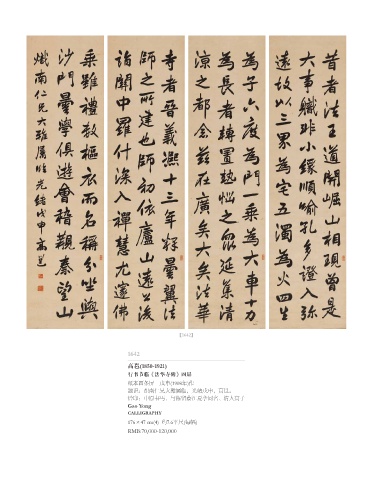 昔者法王道開崛山相現曾是
大事職非小緣順喻孔多證入弥
遠故以三界為宅五濁為火四生
為子六度為門一乘為六車十力
為長者轉置熱惱之所延集清
涼之都念茲在廣矣大矣法華
寺者晉義熙十三年釋曇翼法
師之所建也師初依廬山遠公後
詣關中羅什深入禪慧尤邃佛
乘雖禮教樞衣而名稱分坐與
沙門曇學俱遊會稽覯秦望山
熾南仁兄大雅屬臨光緒戊申高邕
1642
高邕(1850-1921)
行书节临《法华寺碑》四屏
Gao Yong
CALLIGRAPHY
176×47 cm(4)
RMB: 70,000-120,000